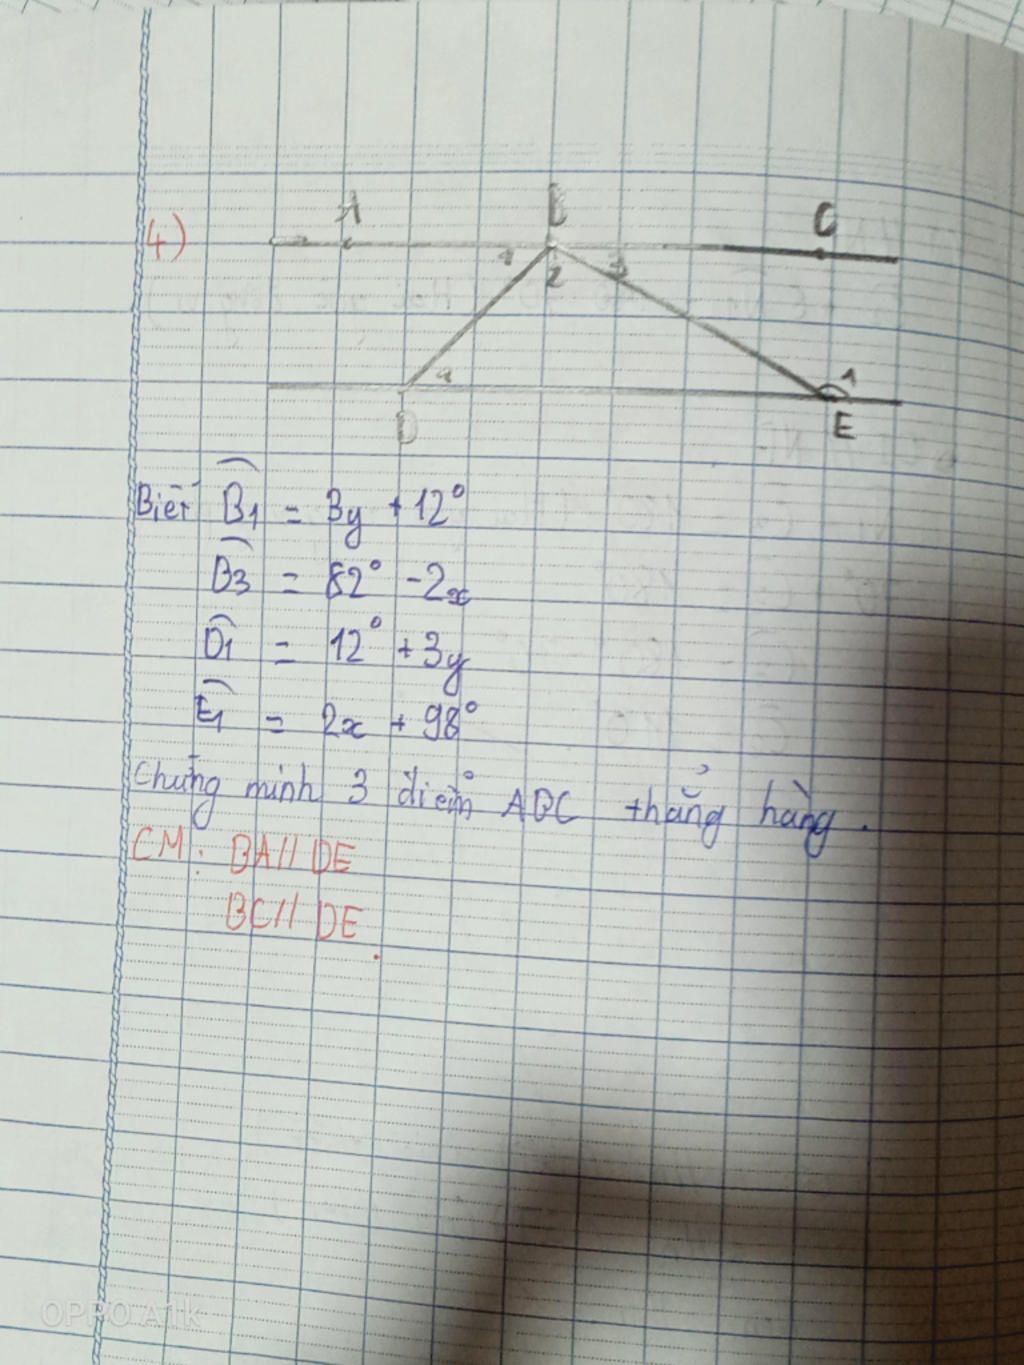 4)
A B C
1 2 3
1 1
D E
Biết B1 = 3y + 12°
B3 = 82° - 2x
D1 = 12° + 3y
E1 = 2x + 98°
Chứng minh 3 điểm ABC thẳng hàng.
CM: BA // DE
BC // DE.
OPPO A1k